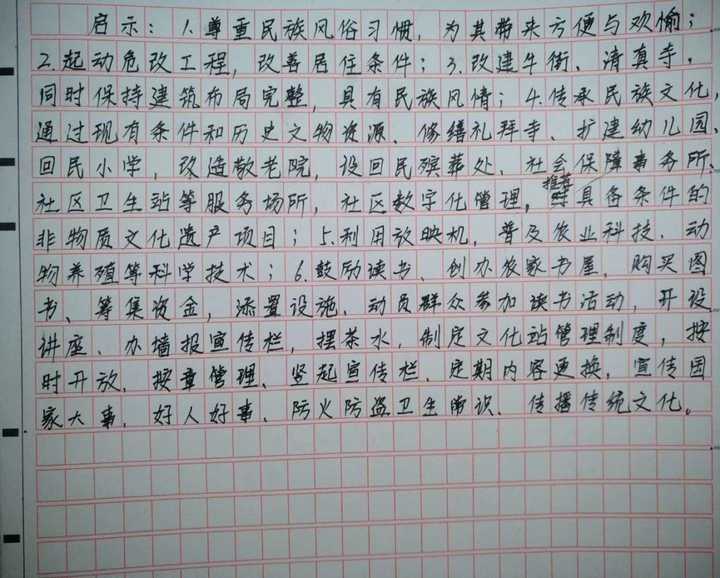 启示：1.尊重民族风俗习惯，为其带来方便与欢愉；
2.起动危改工程，改善居住条件；3.改建牛街、清真寺，
同时保持建筑布局完整，具有民族风情；4.传承民族文化，
通过现有条件和历史文物资源、修缮礼拜寺、扩建幼儿园、
回民小学，改造敬老院，设回民殡葬处、社会保障事务所、
社区卫生站等服务场所，社区数字化管理，推荐具备条件的
非物质文化遗产项目；5.利用放映机，普及农业科技、动
物养殖等科学技术；6.鼓励读书、创办农家书屋，购买图
书、筹集资金，添置设施、动员群众参加读书活动，开设
讲座、办墙报宣传栏，摆茶水，制定文化站管理制度，按
时开放、按章管理、竖起宣传栏、定期内容更换，宣传国
家大事、好人好事、防火防盗卫生常识、传播传统文化。